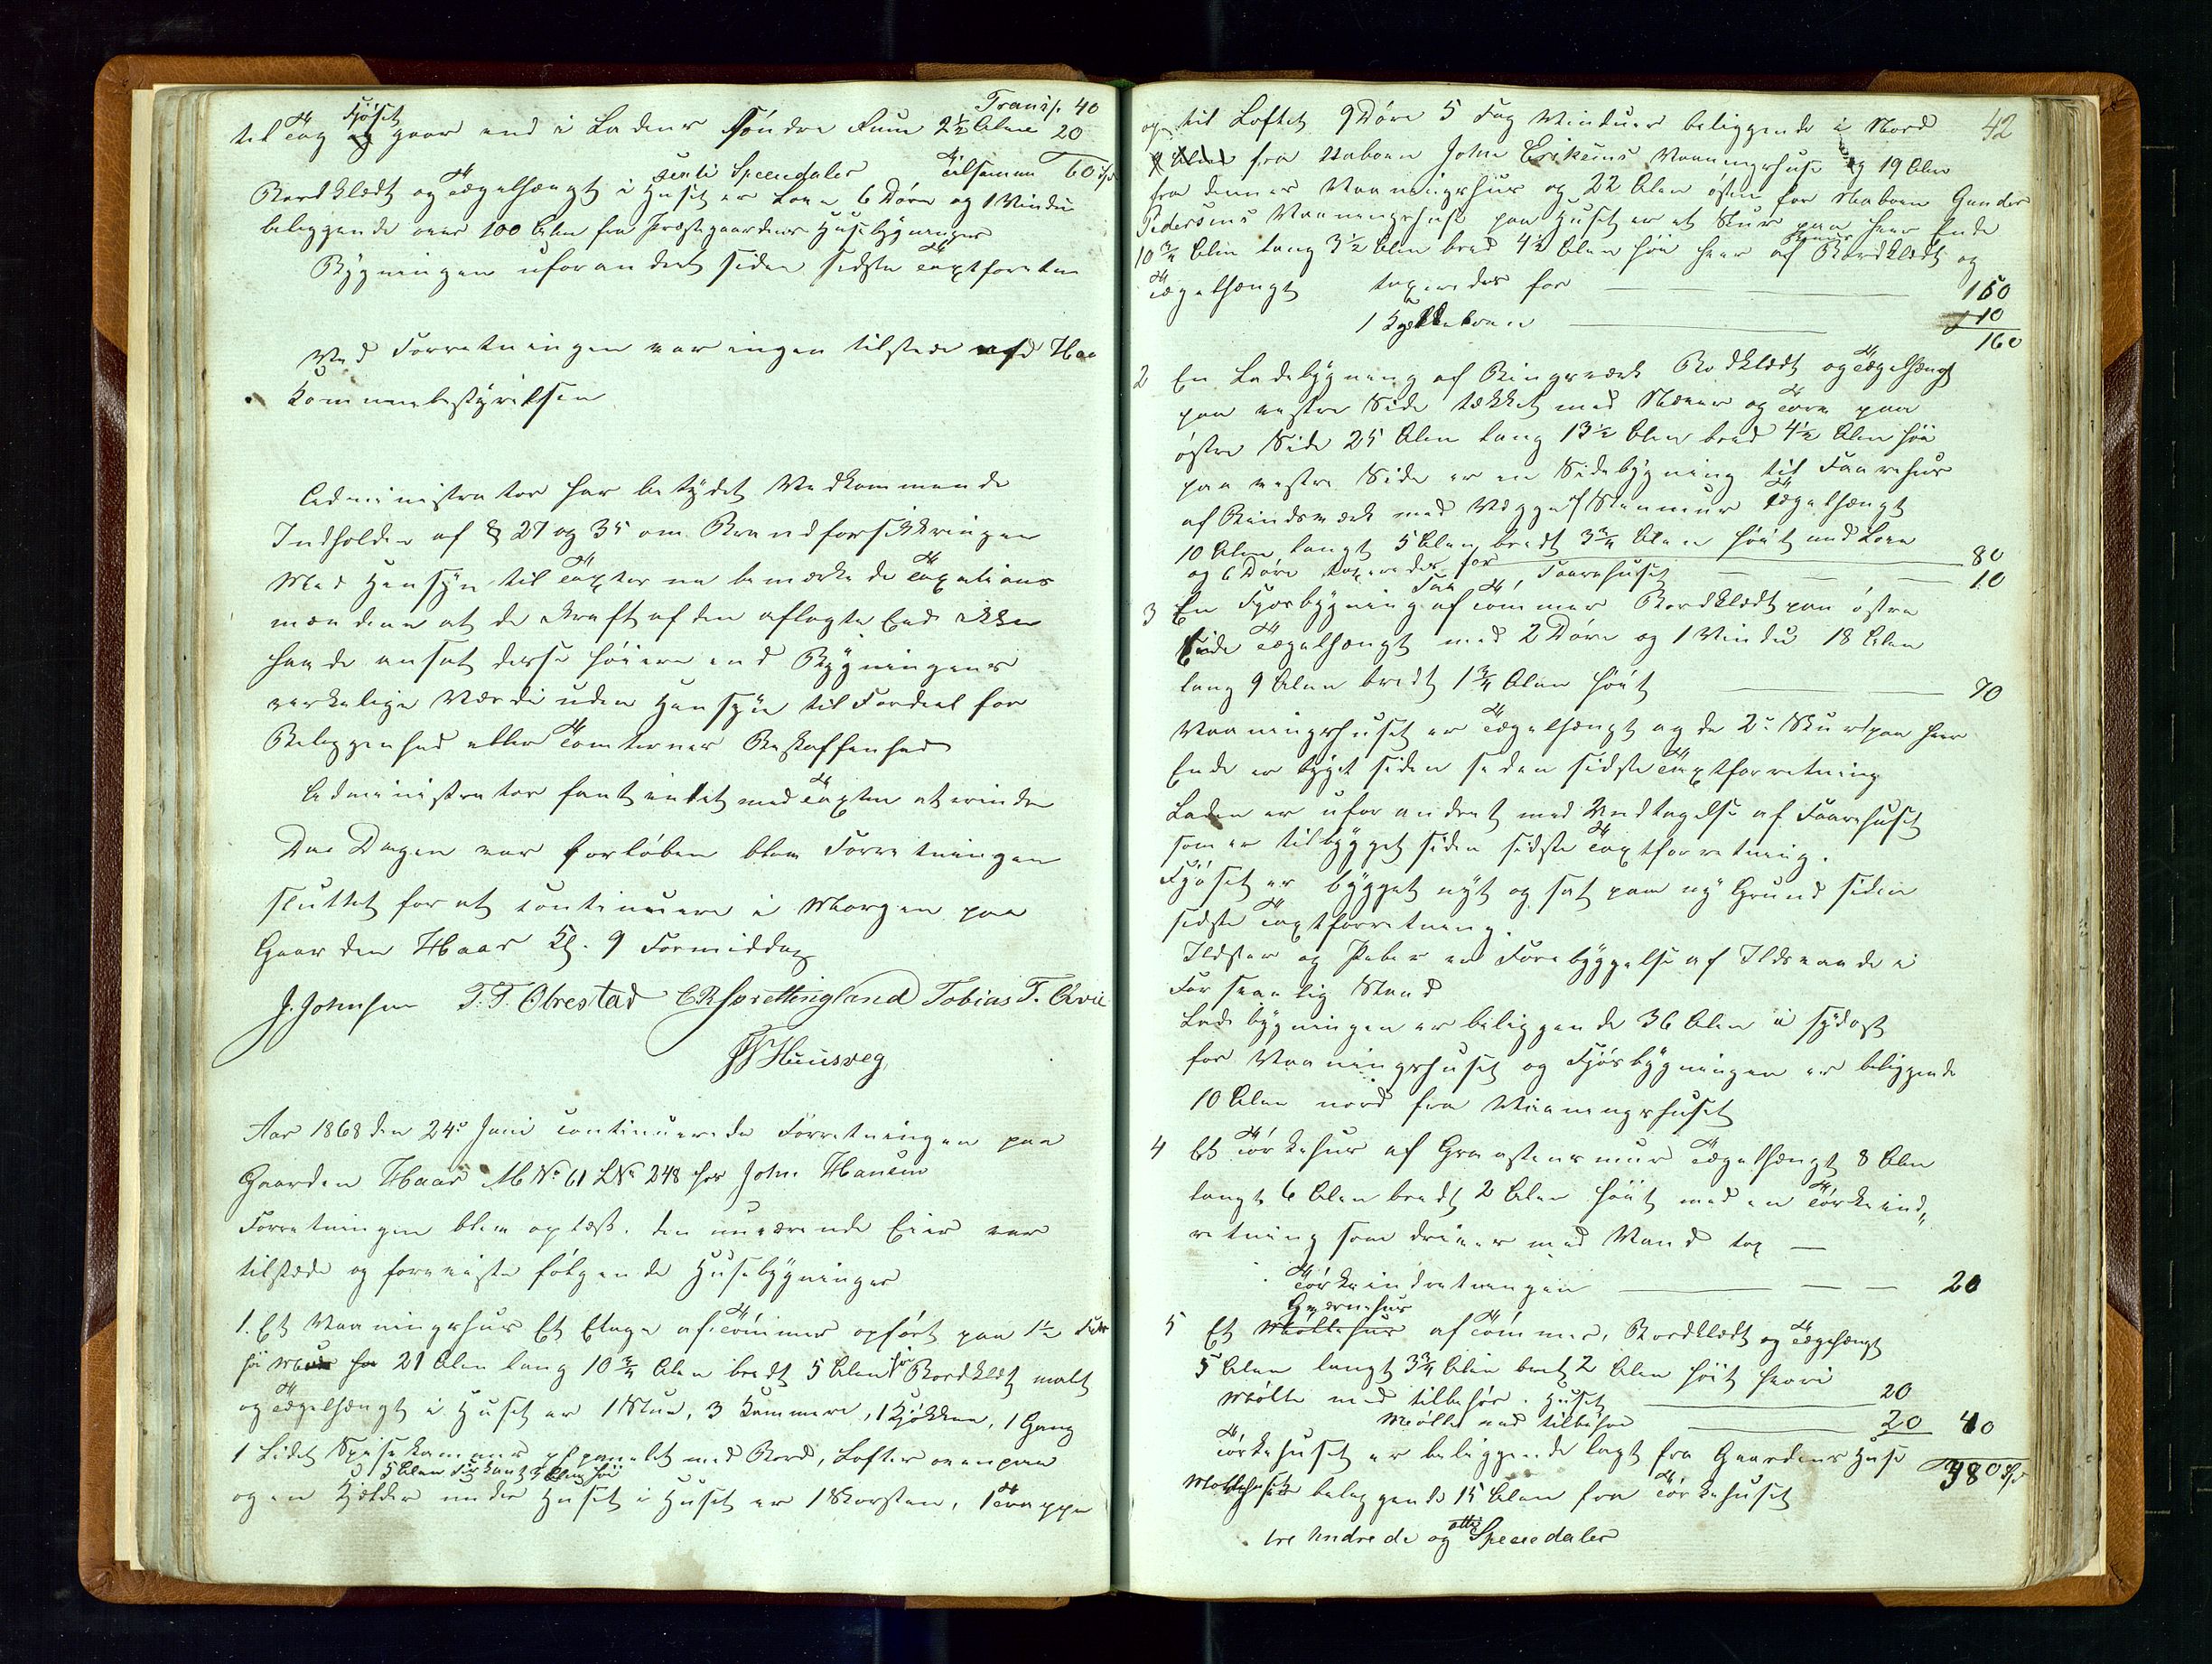 Transp. 40
Fjøset
til Tag og gaar end i Ladens søndre Rum 2½ Alen 20
sexti Speciedaler Tilsamen 60 Spd
Bordklædt og Tægelhængt i Huset er Loen 6 Døre og 1 Vindu
beliggende over 100 Alen fra Præstegaardens Husebygninger
Bygningen uforandret siden sidste Taxtforretn
Ved Forretningen var ingen tilstede af Haa
Kommunebestyrelsen
Administrator har betydet Vedkommende
Indholden af § 27 og 35 om Brandforsikkringen
Med Hensyn til Taxterne bemærkede Taxations
mændene at de i kraft af den aflagte Eed ikke
havde ansat disse høiere end Bygningens
verkelige Værdi uden Hensyn til Fordeel for
Beliggenhed eller Tomternes Beskaffenhed
Administrator fant intet med Taxten at erindre
Da Dagen var forløben blev Forretningen
sluttet for at continuere i Morgen paa
Gaarden Haar Kl. 9 Formiddag
J. Johnsen T. T. Obrestad C R Sørettingland Tobias T. Qvie
Huusveg,
Aar 1868 den 24de Juni continuerede Forretningen paa
Gaarden Haar M No 61 L No 248 hos John Hansen
Forretningen blev oplæst. den nuværende Eier var
tilstæde og foreviste følgende Husebygninger
1. Et Vaaningshus Et Etage af Tømmer opført paa 1½ Alen
høi Muur 21 Alen lang 10¾ Alen bredt 5 Alen høi Bordklædt malt
og Tægelhængt i Huset er 1 Stue, 3 Kammere, 1 Kjøkken, 1 Gang
1 Lidet Spisekammer panelet med Bord, Lofter ovenpaa
5 Alen Firkant 3 Alen høi
og en Kjelder under Huset i Huset er 1 Skorsten, 1 Trappe
42
op til Loftet 9 Døre 5 Fag Vinduer beliggende i Nord
fra Naboen John Eriksens Vaaningshuse og 19 Alen
fra dennes Vaaningshus og 22 Alen østen for Naboen Gunder
Pedersens Vaaningshuse paa Huset er et Skur paa hver Ende
10¾ Alen lang 3½ Alen bred 4½ Alen høi hver af Bordklædt og
Tægelhængt taxeredes for 150
1 Kakkelovn 10
160
2 En Ladebygning af Bingverk Bordklædt og Tægelhængt
paa vestre Side tækket med Næver og Torv paa
østre Side 25 Alen lang 13½ Alen bred 4½ Alen høi
paa vestre Side er en Sidebygning til Faarehus
af Bindverk med Vægge af Stenmur Tægelhængt
10 Alen langt 5 Alen bredt 3¾ Alen høit med Loen
og 6 Døre taxeredes for 80
Faarehuset 10
3 En Fjøsbygning af Tømmer Bordklædt paa østre
Side Tægelhængt med 2 Døre og 1 Vindu 18 Alen
lang 9 Alen bredt 1¾ Alen høit 70
Vaaningshuset er Tægelhængt og de 2de Skur paa hver
Ende er bygt siden sidste Taxtforretning
Laden er uforandret med Undtagelse af Faarehuset
som er tilbygget siden sidste Taxtforretning.
Fjøset er bygget nyt og sat paa ny Grund siden
sidste Taxtforretning.
Ildster og Piber er Forebyggelse af Ildsvaade i
Forsvarlig Stand
Ladebygningen er beliggende 36 Alen i sydost
for Vaaningshuset og Fjøsbygningen er beliggende
10 Alen nord fra Vaaningshuset
4 Et Tørkehus af Graastensmur Tægelhængt 8 Alen
langt 6 Alen bredt 2 Alen høit med en Tørkeind„
retning som drives med Vand tax
Tørkeindretningen 20
Qværnehus
5 Et Møllehus af Tømmer, Bordklædt og Tægehængt
5 Alen langt 3¾ Alen bret 2 Alen høit hvori
Mølle med tilbehør. Huset 20
Mølle med tilbehør 20 40
Tørkehuset er beliggende langt fra Gaardens Huse 380 Spd
Møllehuset beliggende 15 Alen fra Tørkehuset
tre hndrede og otti Speciedaler